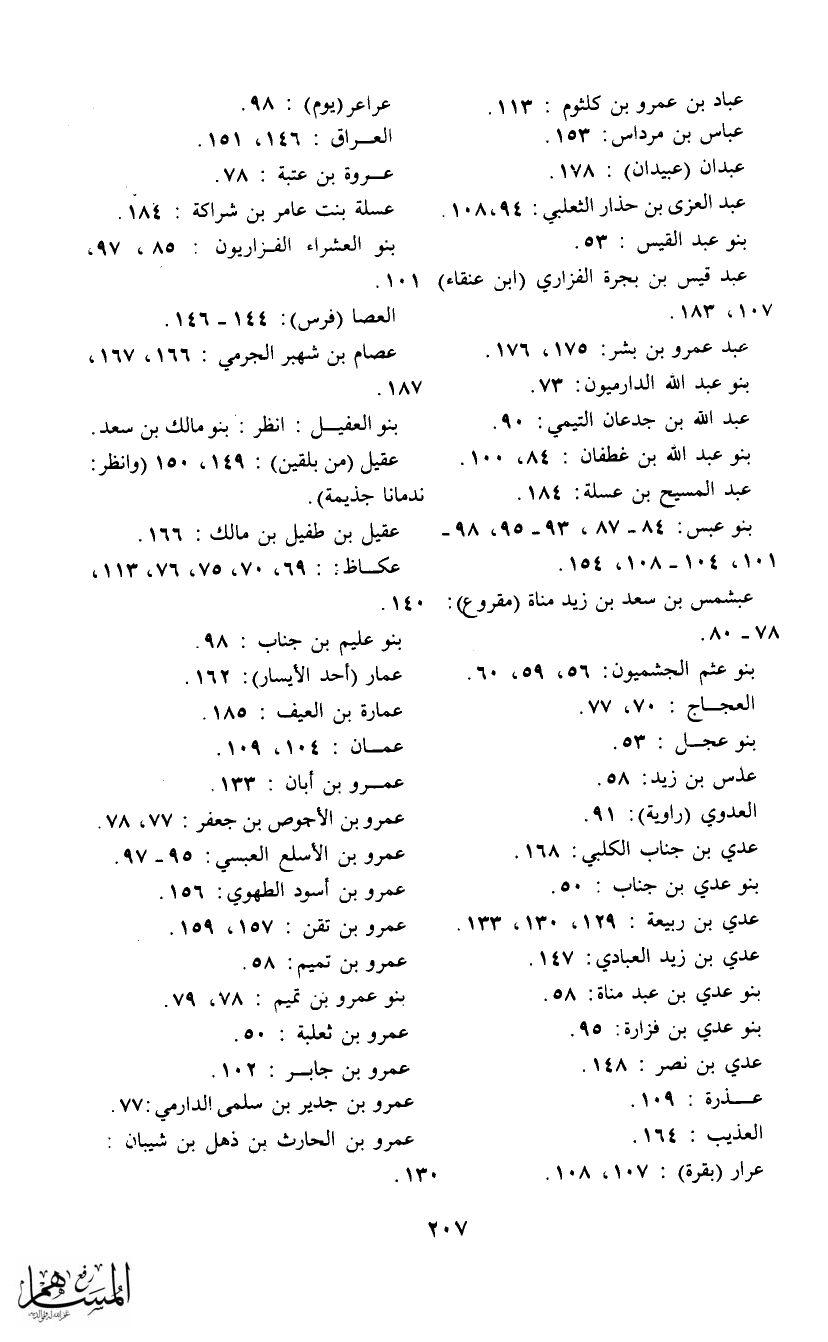 عباد بن عمرو بن كلثوم : ١١٣.
عباس بن مرداس: ١٥٣.
عبدان (عبيدان) : ١٧٨.
عبد العزى بن حذار الثعلبي : ٩٤، ١٠٨.
بنو عبد القيس : ٥٣.
عبد قيس بن بجرة الفزاري (ابن عنقاء)
١٠٧، ١٨٣.
عبد عمرو بن بشر: ١٧٥، ١٧٦.
بنو عبد الله الدارميون: ٧٣.
عبد الله بن جدعان التيمي: ٩٠.
بنو عبد الله بن غطفان : ٨٤، ١٠٠.
عبد المسيح بن عسلة: ١٨٤.
بنو عبس: ٨٤ ـ ٨٧ ، ٩٣ ـ ٩٥، ٩٨ ـ
١٠١، ١٠٤ ـ ١٠٨، ١٥٤.
عبشمس بن سعد بن زيد مناة (مقروع):
٧٨ ـ ٨٠.
بنو عثم الجشميون: ٥٦، ٥٩، ٦٠.
العجــاج : ٧٠، ٧٧.
بنو عجــل : ٥٣.
عدس بن زيد: ٥٨.
العدوي (راوية): ٩١.
عدي بن جناب الكلبي: ١٦٨.
بنو عدي بن جناب : ٥٠.
عدي بن ربيعة : ١٢٩، ١٣٠، ١٣٣.
عدي بن زيد العبادي: ١٤٧.
بنو عدي بن عبد مناة: ٥٨.
بنو عدي بن فزارة: ٩٥.
عدي بن نصر : ١٤٨.
عــــذرة : ١٠٩.
العذيب : ١٦٤.
عرار (بقرة) : ١٠٧، ١٠٨.
عراعر (يوم) : ٩٨.
العــراق : ١٤٦، ١٥١.
عــروة بن عتبة : ٧٨.
عسلة بنت عامر بن شراكة : ١٨٤.
بنو العشراء الفــزاريون : ٨٥ ، ٩٧،
١٠١.
العصا (فرس): ١٤٤ ـ ١٤٦.
عصام بن شهبر الجرمي : ١٦٦، ١٦٧،
١٨٧.
بنو العفيــل : انظر : بنو مالك بن سعد.
عقيل (من بلقين) : ١٤٩، ١٥٠ (وانظر:
ندمانا جذيمة).
عقيل بن طفيل بن مالك : ١٦٦.
عكــاظ: : ٦٩، ٧٠، ٧٥، ٧٦، ١١٣،
١٤٠.
بنو عليم بن جناب : ٩٨.
عمار (أحد الأيسار): ١٦٢.
عمارة بن العيف : ١٨٥.
عمــان : ١٠٤، ١٠٩.
عمــرو بن أبان : ١٣٣.
عمرو بن الأجوص بن جعفر : ٧٧، ٧٨.
عمرو بن الأسلع العبسي: ٩٥ ـ ٩٧.
عمرو بن أسود الطهوي: ١٥٦.
عمرو بن تقن : ١٥٧، ١٥٩.
عمرو بن تميم: ٥٨.
بنو عمرو بن تميم : ٧٨، ٧٩.
عمرو بن ثعلبة : ٥٠.
عمرو بن جابــر : ١٠٢.
عمرو بن جدير بن سلمى الدارمي: ٧٧.
عمرو بن الحارث بن ذهل بن شيبان :
١٣٠.
٢٠٧
رفع
المساهم